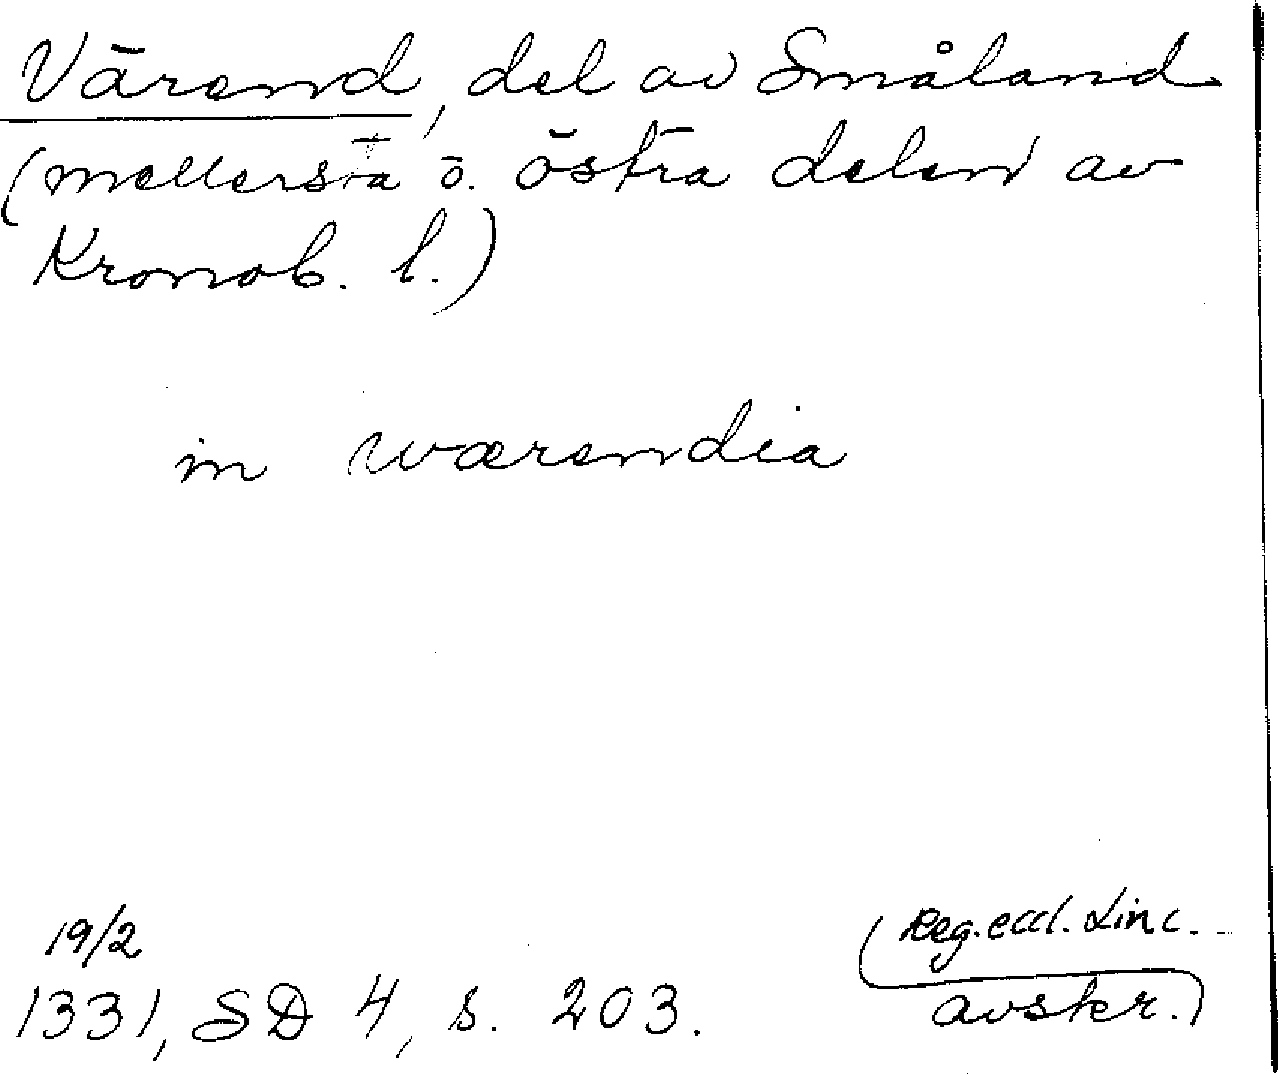 Värend, del av Småland
(mellersta o. östra delen av
Kronob. l.)
in wærendia
19/2
1331, SD 4, s. 203.
(Reg. eccl. Linc.
avskr.)